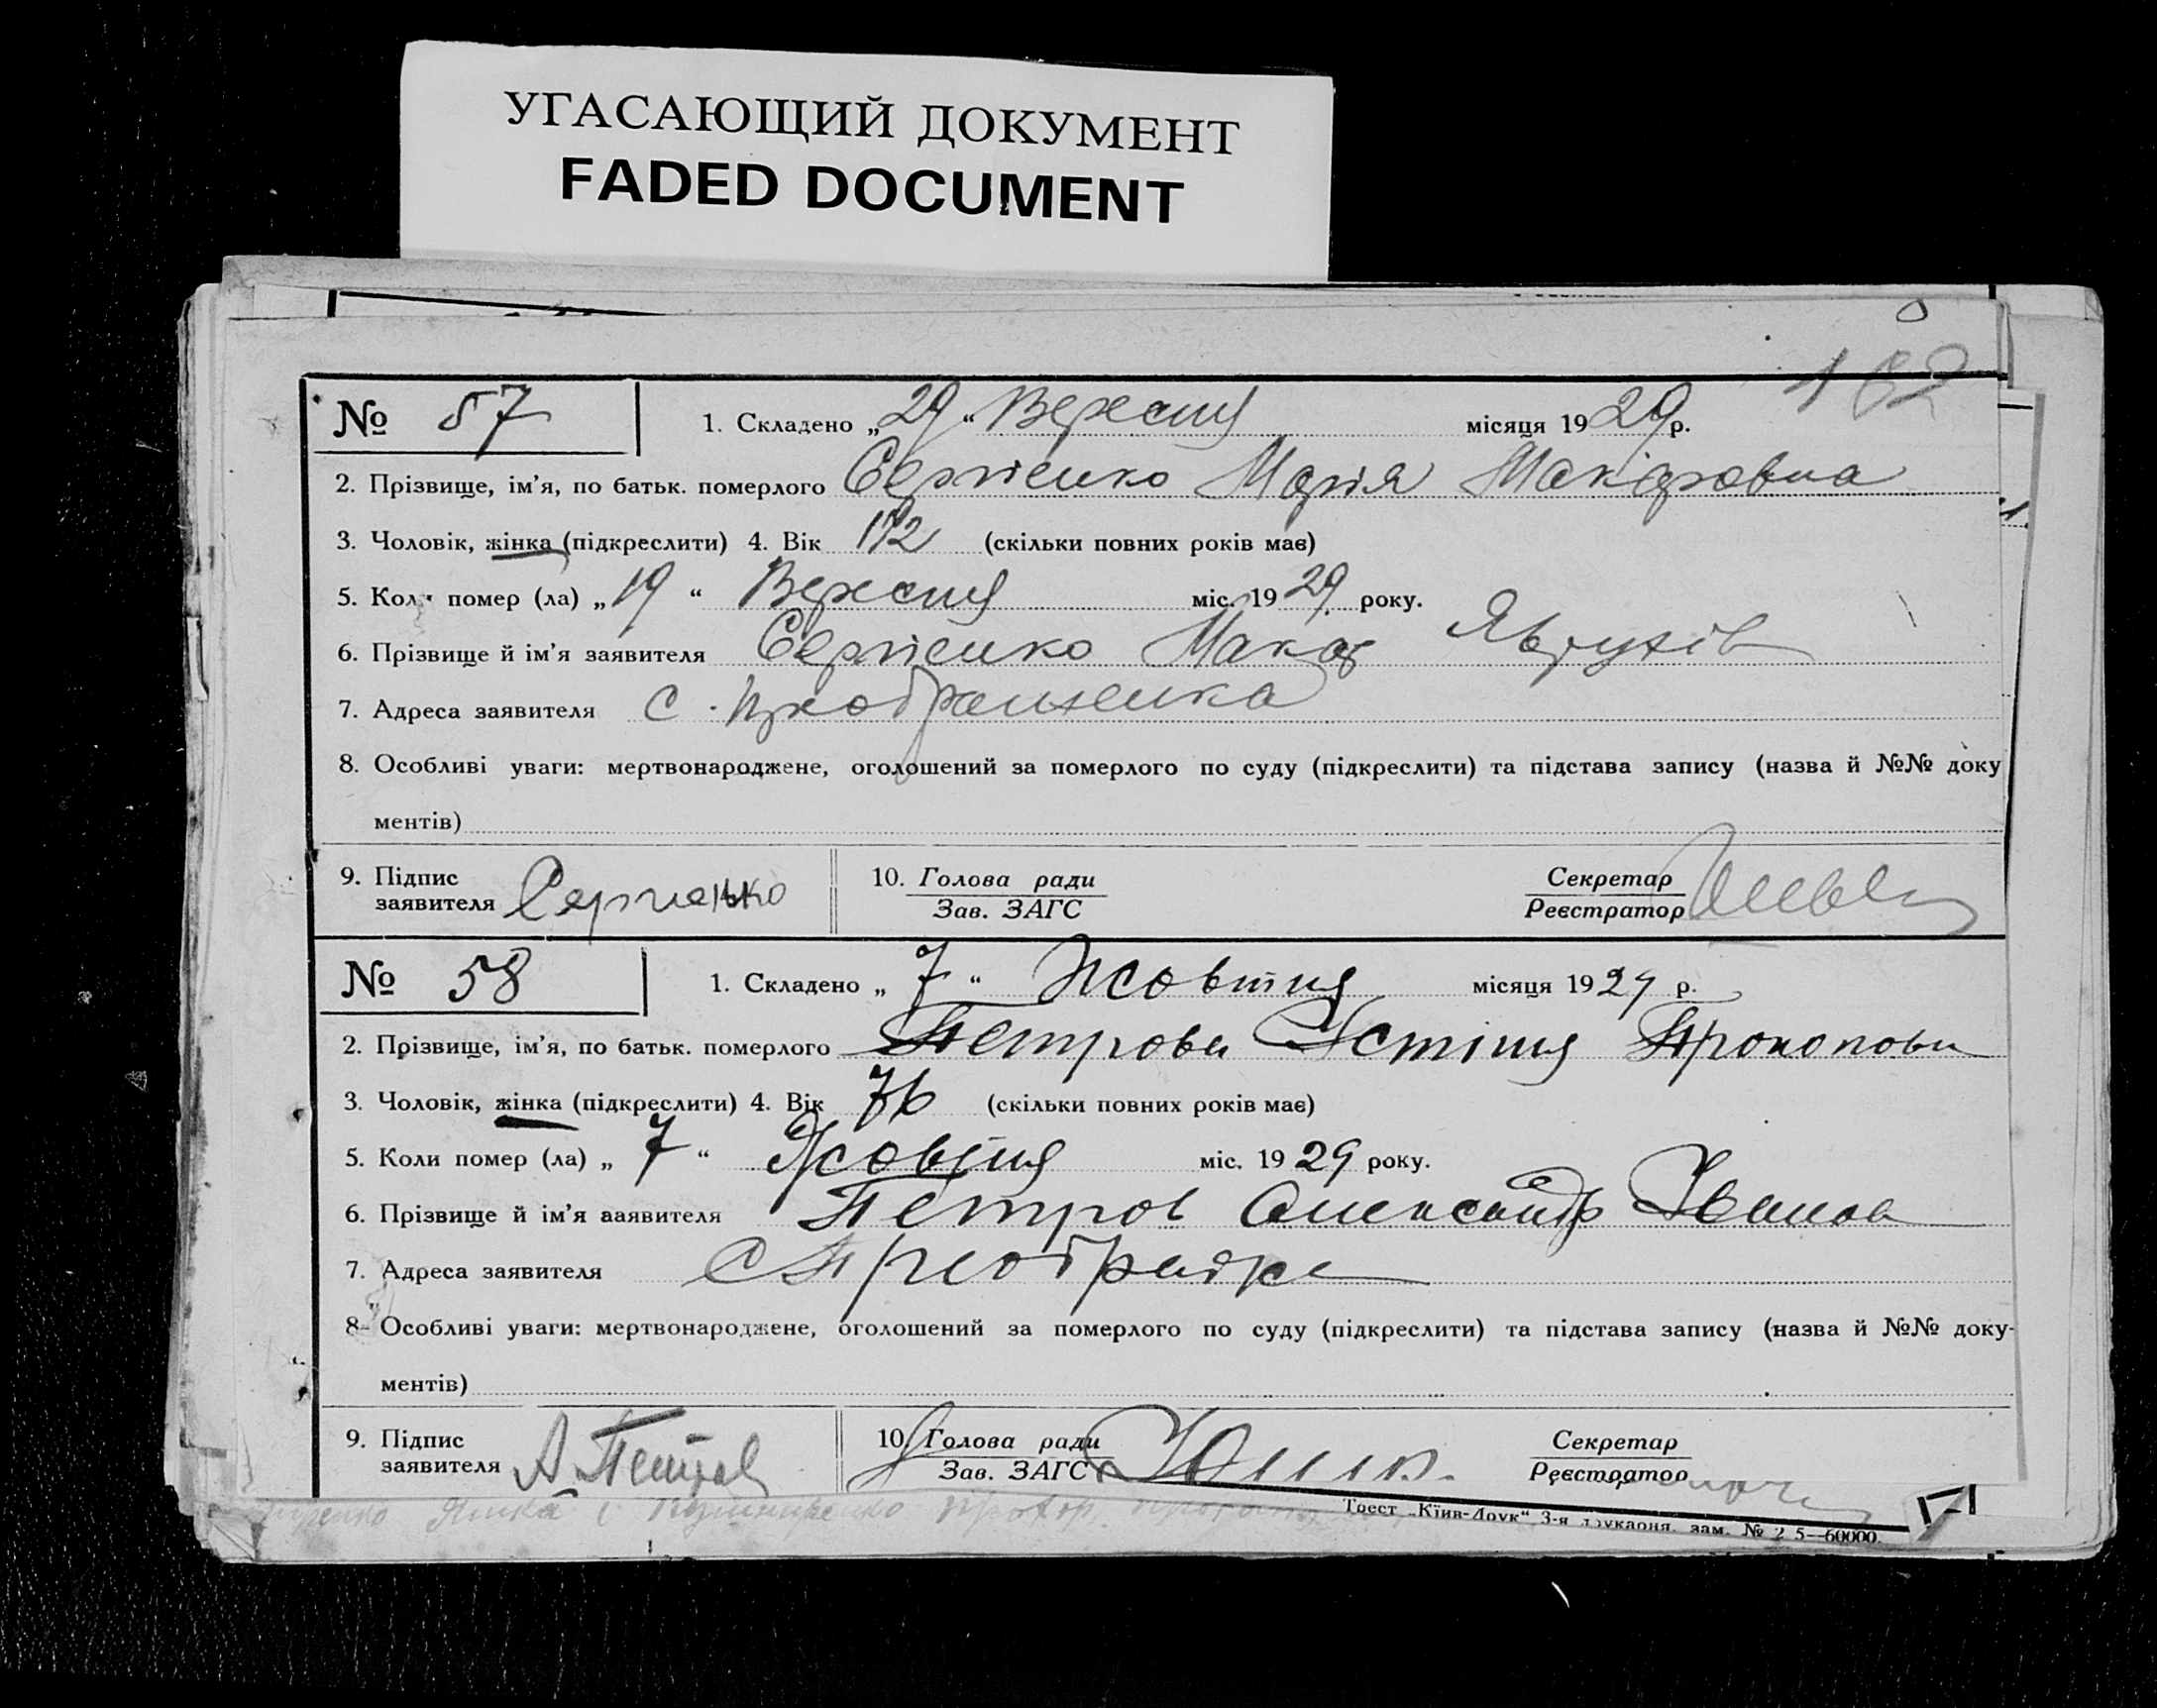 УГАСАЮЩИЙ ДОКУМЕНТ
FADED DOCUMENT
№ 57
1. Складено „ 29 “ Вересня місяця 19 29 р.
2. Прізвище, ім'я, по батьк. померлого Сергієнко Марія Макаровна
3. Чоловік, жінка (підкреслити) 4. Вік (скільки повних років має)
5. Коли помер (ла) „ 19 “ Вересня міс. 19 29 року.
6. Прізвище й ім'я заявителя Сергієнко Макар Явтухів
7. Адреса заявителя с.
8. Особливі уваги: мертвонароджене, оголошений за померлого по суду (підкреслити) та підстава запису (назва й №№ доку
ментів)
9. Підпис заявителя
10. Голова ради
Зав. ЗАГС
Секретар
Реєстратор
№ 58
1. Складено „ 7 “ Жовтня місяця 19 29 р.
2. Прізвище, ім'я, по батьк. померлого Петрова Устіня Прокопови
3. Чоловік, жінка (підкреслити) 4. Вік 76 (скільки повних років має)
5. Коли помер (ла) „ 7 “ Жовтня міс. 19 29 року.
6. Прізвище й ім'я заявителя Петров Олександр Іванов
7. Адреса заявителя С
8 Особливі уваги: мертвонароджене, оголошений за померлого по суду (підкреслити) та підстава запису (назва й №№ доку-
ментів)
9. Підпис заявителя А. Петров
10. Голова ради
Зав. ЗАГС
Секретар
Реєстратор
Трест „Київ-Друк“ 3-я друкарня, зам. №